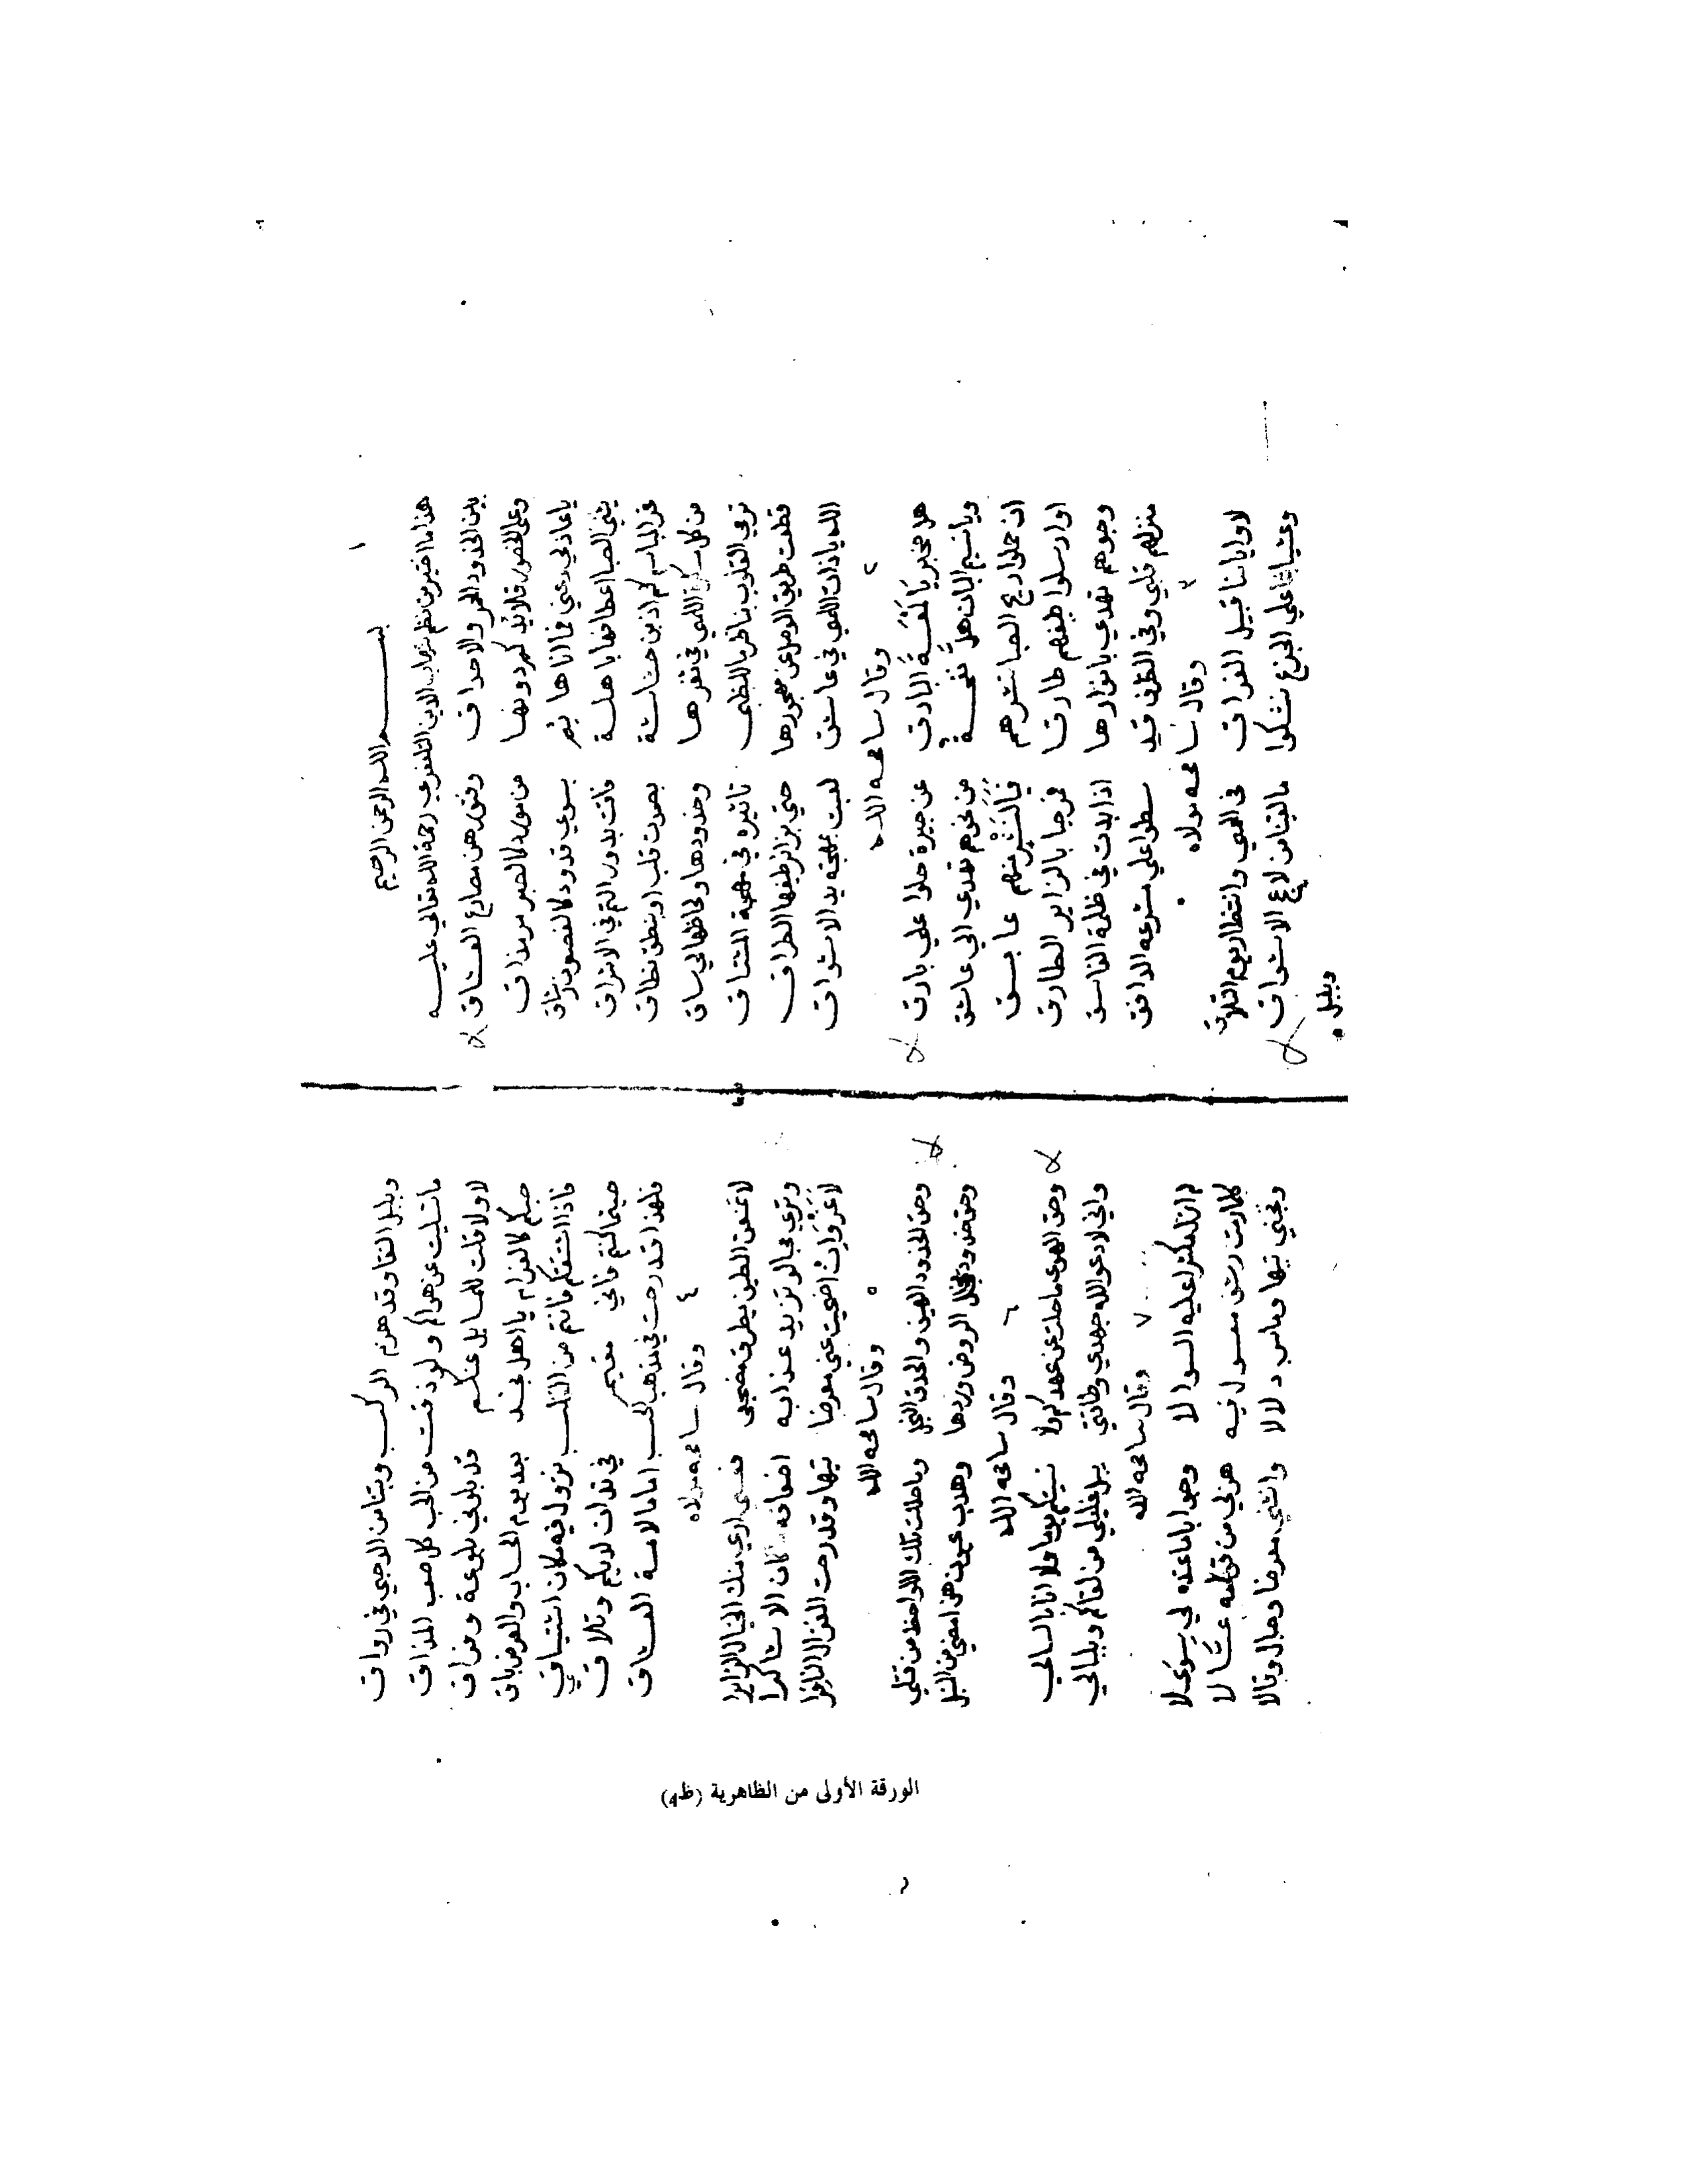 ١
بسم الله الرحمن الرحيم
هذا ما اختير من نظم شهاب الدين التلعفري رحمة الله تعالى عليه
بين الخدود الحمر والاحداق وفتورهن مصارع العشاق
وعلى الخصور قلائد كم دونها من مورد كالصبر مر مذاق
يا عاذلي دعني فما انا هايم بسوى قدود كالغصون رشاق
يثني الصبا اعطافها باهلة فاقت بدور التم في الاشراق
غر المباسم كم اذبن حشاشة بصموت قلب او بنطق نطاق
من كل سكرى اللمى في ثغرها وخدودها ولحاظها لي ساق
ترمي القلوب بناظر باللظى تاثيره في مهجة المشتاق
قطعت طريق الوصل عن مهجورها حتى بزائر طيفها الطراق
الله ياذات اللمى في عاشق لعبت بمهجته يد الاشواق
٢
وقال سامحه الله
هل مخبر يا لمعة البارق عن جيرة حلوا على بارق
ويا نسيم البان هل نفحة من نحوهم تهدى الى عاشق
ان حملوا ريح الصبا نشرهم فيا لنشر منهم عابق
او ارسلوا طيفهم طارقا فمرحبا بالزاير الطارق
وجوههم تهدي بانوارها اذا بدت في ظلمة الغاسق
منزلهم قلبي وفي الطرف قد سطوا على مشرعه الدافق
٣
وقال سامحه مولاه
لا وايامنا قبيل الفراق في الحمى وانتظار يوم التلاق
وعشيا على الجزع نشكوا مالقينا من لاعج الاشواق
وبليل
وبليل النقا وقد هوم الركب وبتنا من الدجى في رواق
ما تسليت عن هواكم ولو ذقت من الحب كل صعب المذاق
لا ولا قلت للمسايل عنكم قد بلوني بلوعة وفراق
حبكم كالغرام يا اهل نجد بعد يوم الحساب والعرض باق
فاذا اشتقتكم فانتم من القلب بزول فيه مكان اشتياقي
حيثما كنتم فاني مقيم في تدان لديكم وتلاق
فلهذا قد رحت في مذهب الحب اماما لامة العشاق
٤
وقال سامحه مولاه
لا تمنعن الطيف يطرق مضجعي فعسى ارى منك الخيال الزايرا
وترى محبا لو تزيد عذابه اضعافه ما كان الا شاكرا
لا غرو ان اضحيت عني معرضا تيها وقد رحت الغزال النافرا
٥
وقال سامحه الله
وحق الخدود الهيف والحدق النجل وما حللت تلك اللواحظ من قتلي
وحق خدود يخجل الروض وردها وهدب عيون هن امضى من النبل
٦
وقال سامحه الله
وحق الهوى ما حلت عن عهدكم ولا نسيتكم يوما ولا انا بالسالي
واني لادعو الله جهدي وطاقتي يبل غليلي من لقاكم وبلبالي
٧
وقال سامحه الله
لم اتلكثرا عليه السوالا وجوابا ما عنده لي سوى لا
كلما رمت رشف معسول فيه هز لي من قوامه عسالا
وتجنى تيها وماس دلالا وانثنى معرضا وصال وقالا
الورقة الأولى من الظاهرية (ظ4)